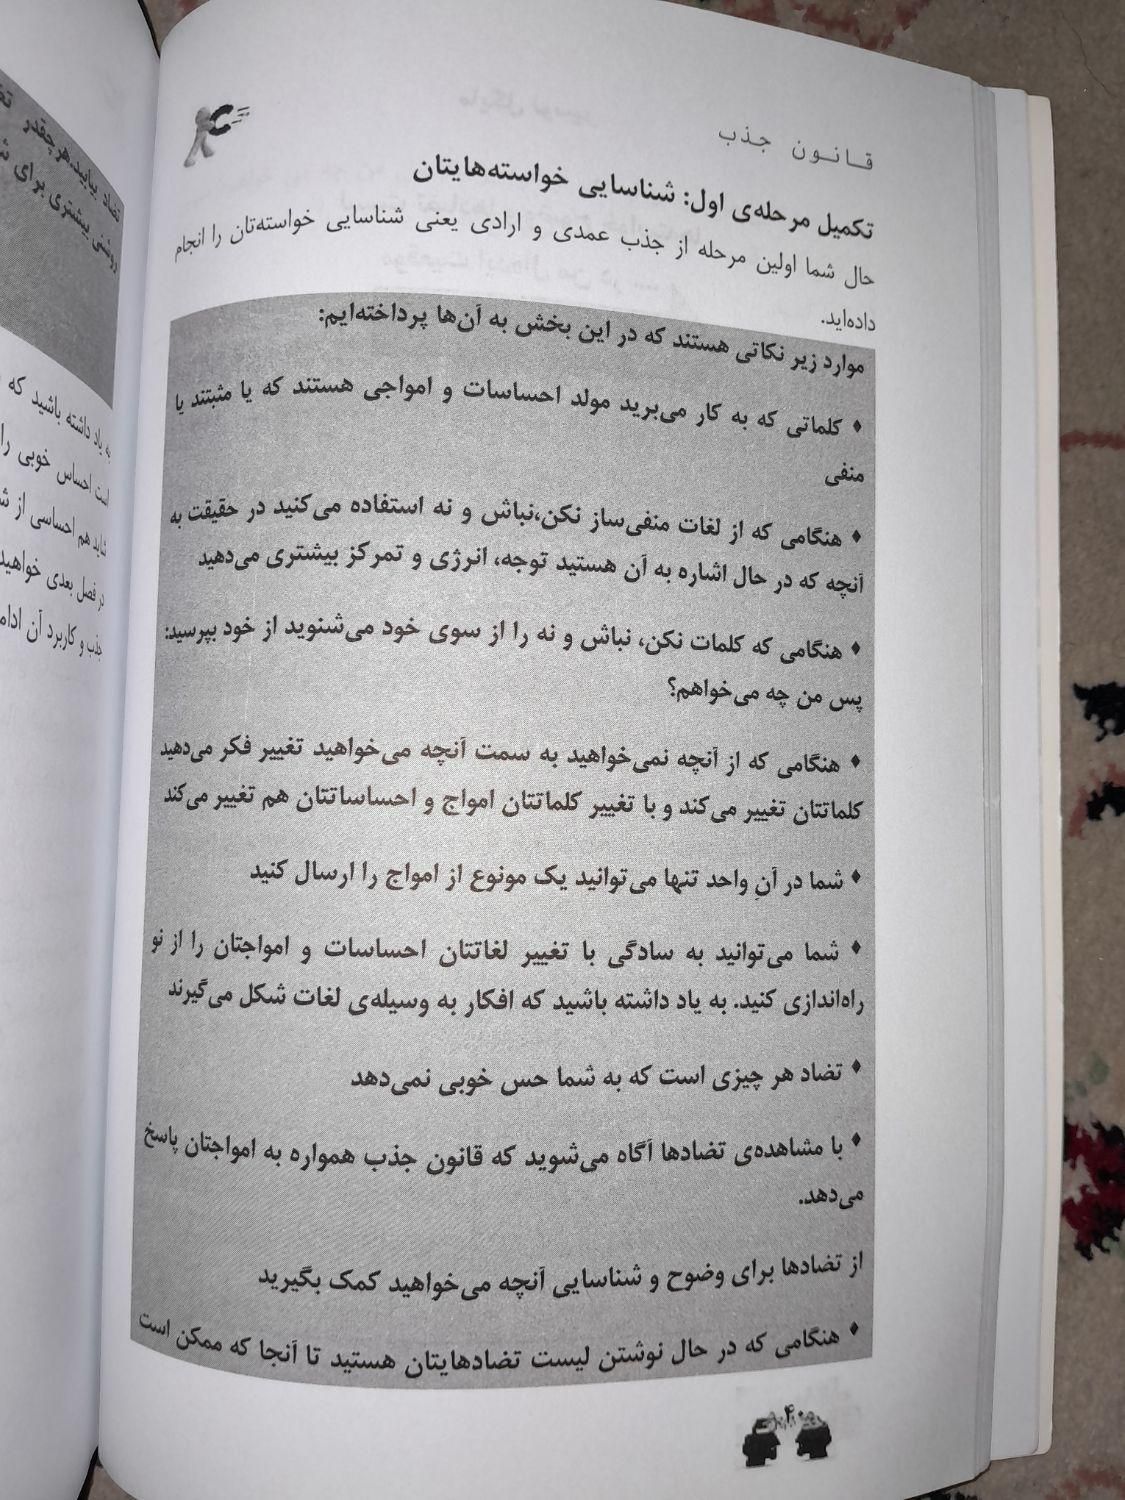 قانون جذب
تکمیل مرحله‌ی اول: شناسایی خواسته‌هایتان
حال شما اولین مرحله از جذب عمدی و ارادی یعنی شناسایی خواسته‌تان را انجام
داده‌اید.
موارد زیر نکاتی هستند که در این بخش به آن‌ها پرداخته‌ایم:
♦ کلماتی که به کار می‌برید مولد احساسات و امواجی هستند که یا مثبتند یا
منفی
♦ هنگامی که از لغات منفی‌ساز نکن،نباش و نه استفاده می‌کنید در حقیقت به
آنچه که در حال اشاره به آن هستید توجه، انرژی و تمرکز بیشتری می‌دهید
♦ هنگامی که کلمات نکن، نباش و نه را از سوی خود می‌شنوید از خود بپرسید:
پس من چه می‌خواهم؟
♦ هنگامی که از آنچه نمی‌خواهید به سمت آنچه می‌خواهید تغییر فکر می‌دهید
کلماتتان تغییر می‌کند و با تغییر کلماتتان امواج و احساساتتان هم تغییر می‌کند
♦ شما در آنِ واحد تنها می‌توانید یک مونوع از امواج را ارسال کنید
♦ شما می‌توانید به سادگی با تغییر لغاتتان احساسات و امواجتان را از نو
راه‌اندازی کنید. به یاد داشته باشید که افکار به وسیله‌ی لغات شکل می‌گیرند
♦ تضاد هر چیزی است که به شما حس خوبی نمی‌دهد
♦ با مشاهده‌ی تضادها آگاه می‌شوید که قانون جذب همواره به امواجتان پاسخ
می‌دهد.
از تضادها برای وضوح و شناسایی آنچه می‌خواهید کمک بگیرید
♦ هنگامی که در حال نوشتن لیست تضادهایتان هستید تا آنجا که ممکن است
۴۰
تضاد بیابید.هرچقدر
روشنی بیشتری برای
به یاد داشته باشید که
است احساس خوبی را
شاید هم احساسی از
در فصل بعدی خواهید
جذب و کاربرد آن